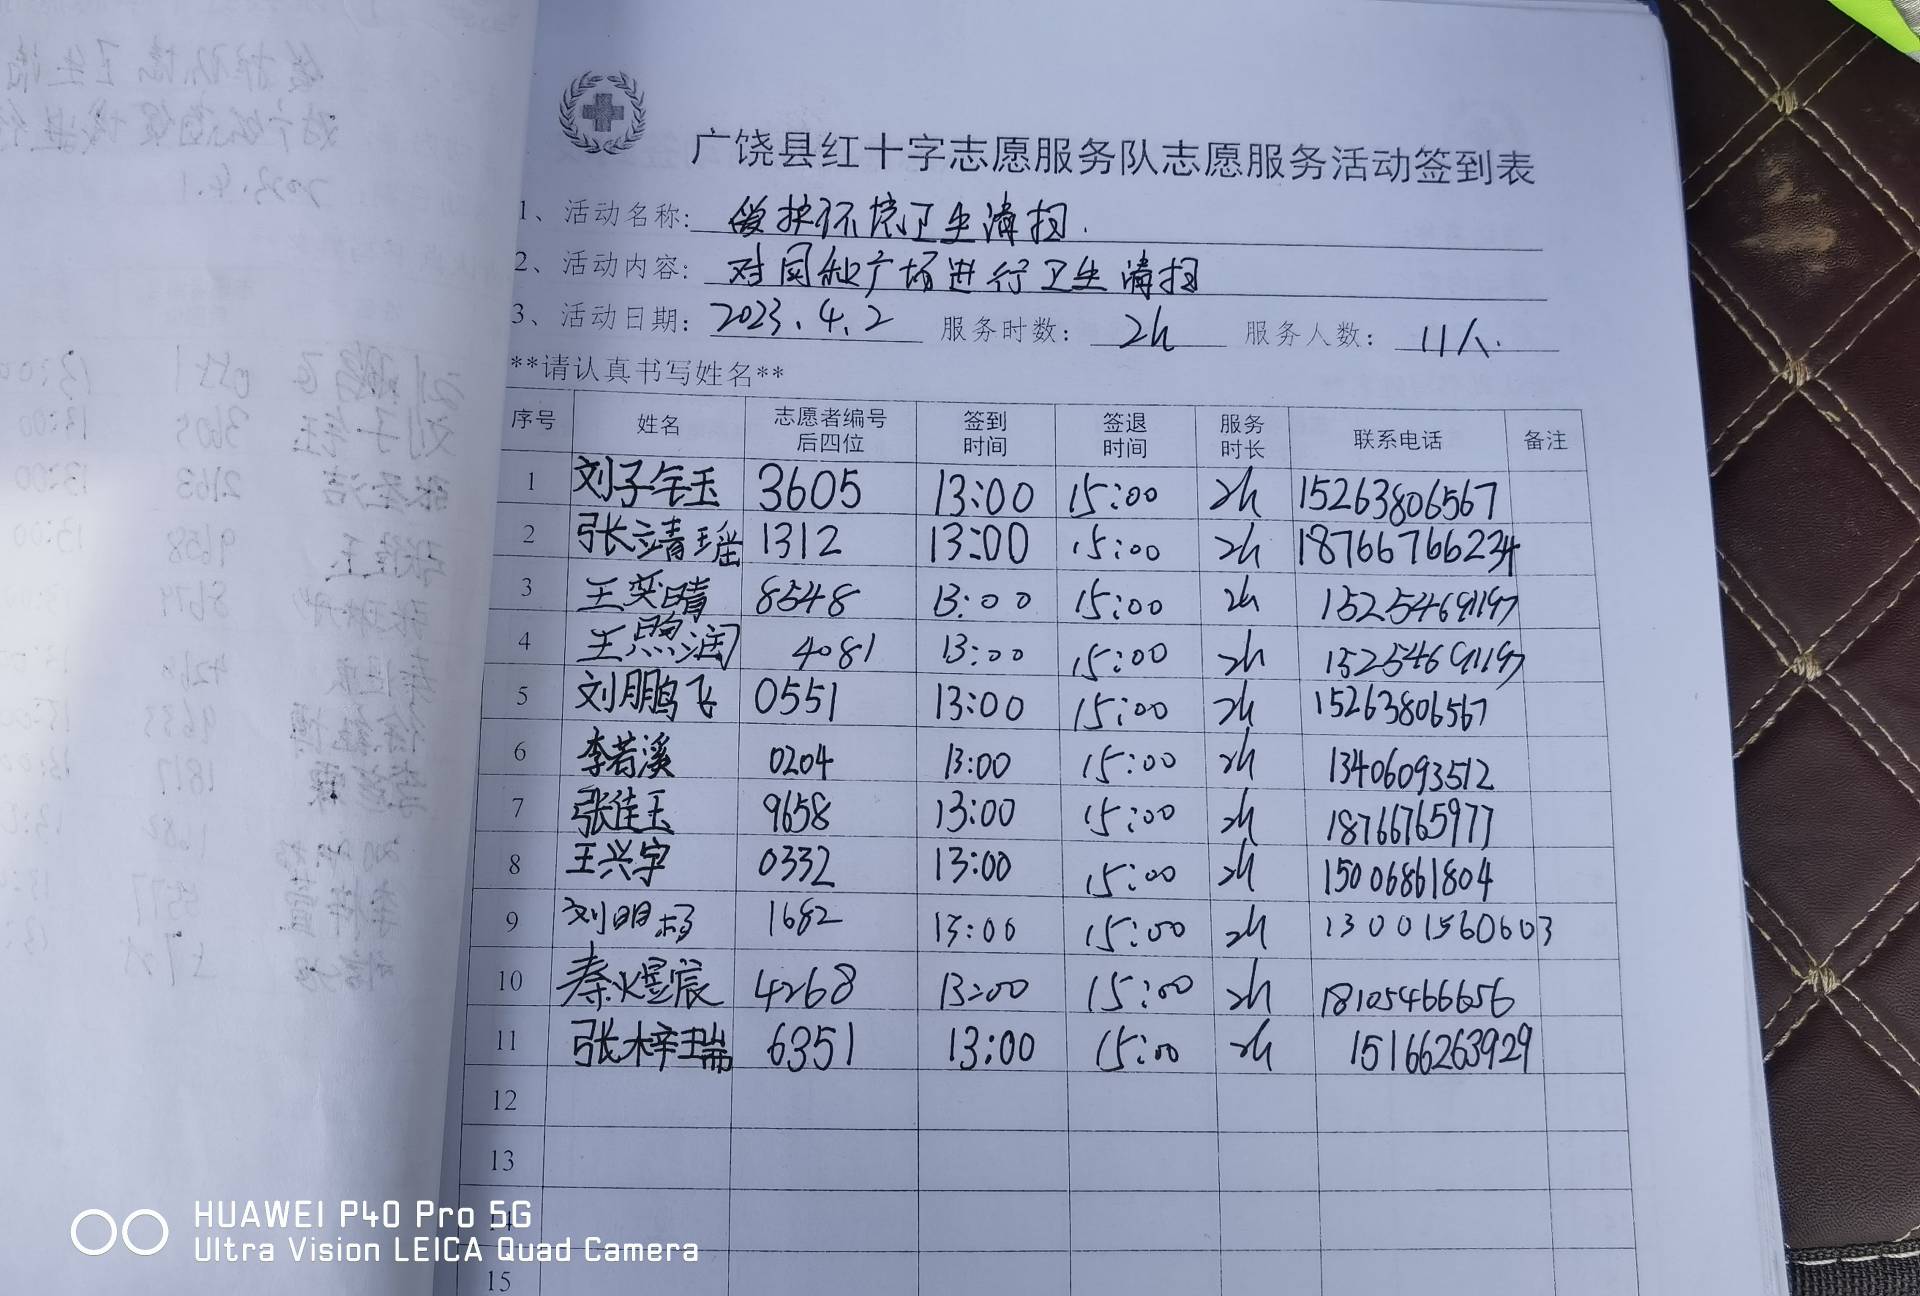 广饶县红十字志愿服务队志愿服务活动签到表
1、活动名称: 爱护环境卫生清扫.
2、活动内容: 对同和广场进行卫生清扫
3、活动日期: 2023.4.2 服务时数: 2h 服务人数: 11人.
**请认真书写姓名**
序号 姓名 志愿者编号后四位 签到时间 签退时间 服务时长 联系电话 备注
1 刘子钰 3605 13:00 15:00 2h 15263806567
2 张靖瑶 1312 13:00 15:00 2h 18766766234
3 王奕晴 8548 13:00 15:00 2h 15254691197
4 王煦润 4081 13:00 15:00 2h 15254691197
5 刘鹏飞 0551 13:00 15:00 2h 15263806567
6 李若溪 0204 13:00 15:00 2h 13406093512
7 张佳玉 9658 13:00 15:00 2h 18766765977
8 王兴宇 0332 13:00 15:00 2h 15006861804
9 刘明杨 1682 13:00 15:00 2h 13001560603
10 秦煜宸 4268 13:00 15:00 2h 18105466656
11 张梓瑞 6351 13:00 15:00 2h 15166263929
12
13
14
15
HUAWEI P40 Pro 5G
Ultra Vision LEICA Quad Camera